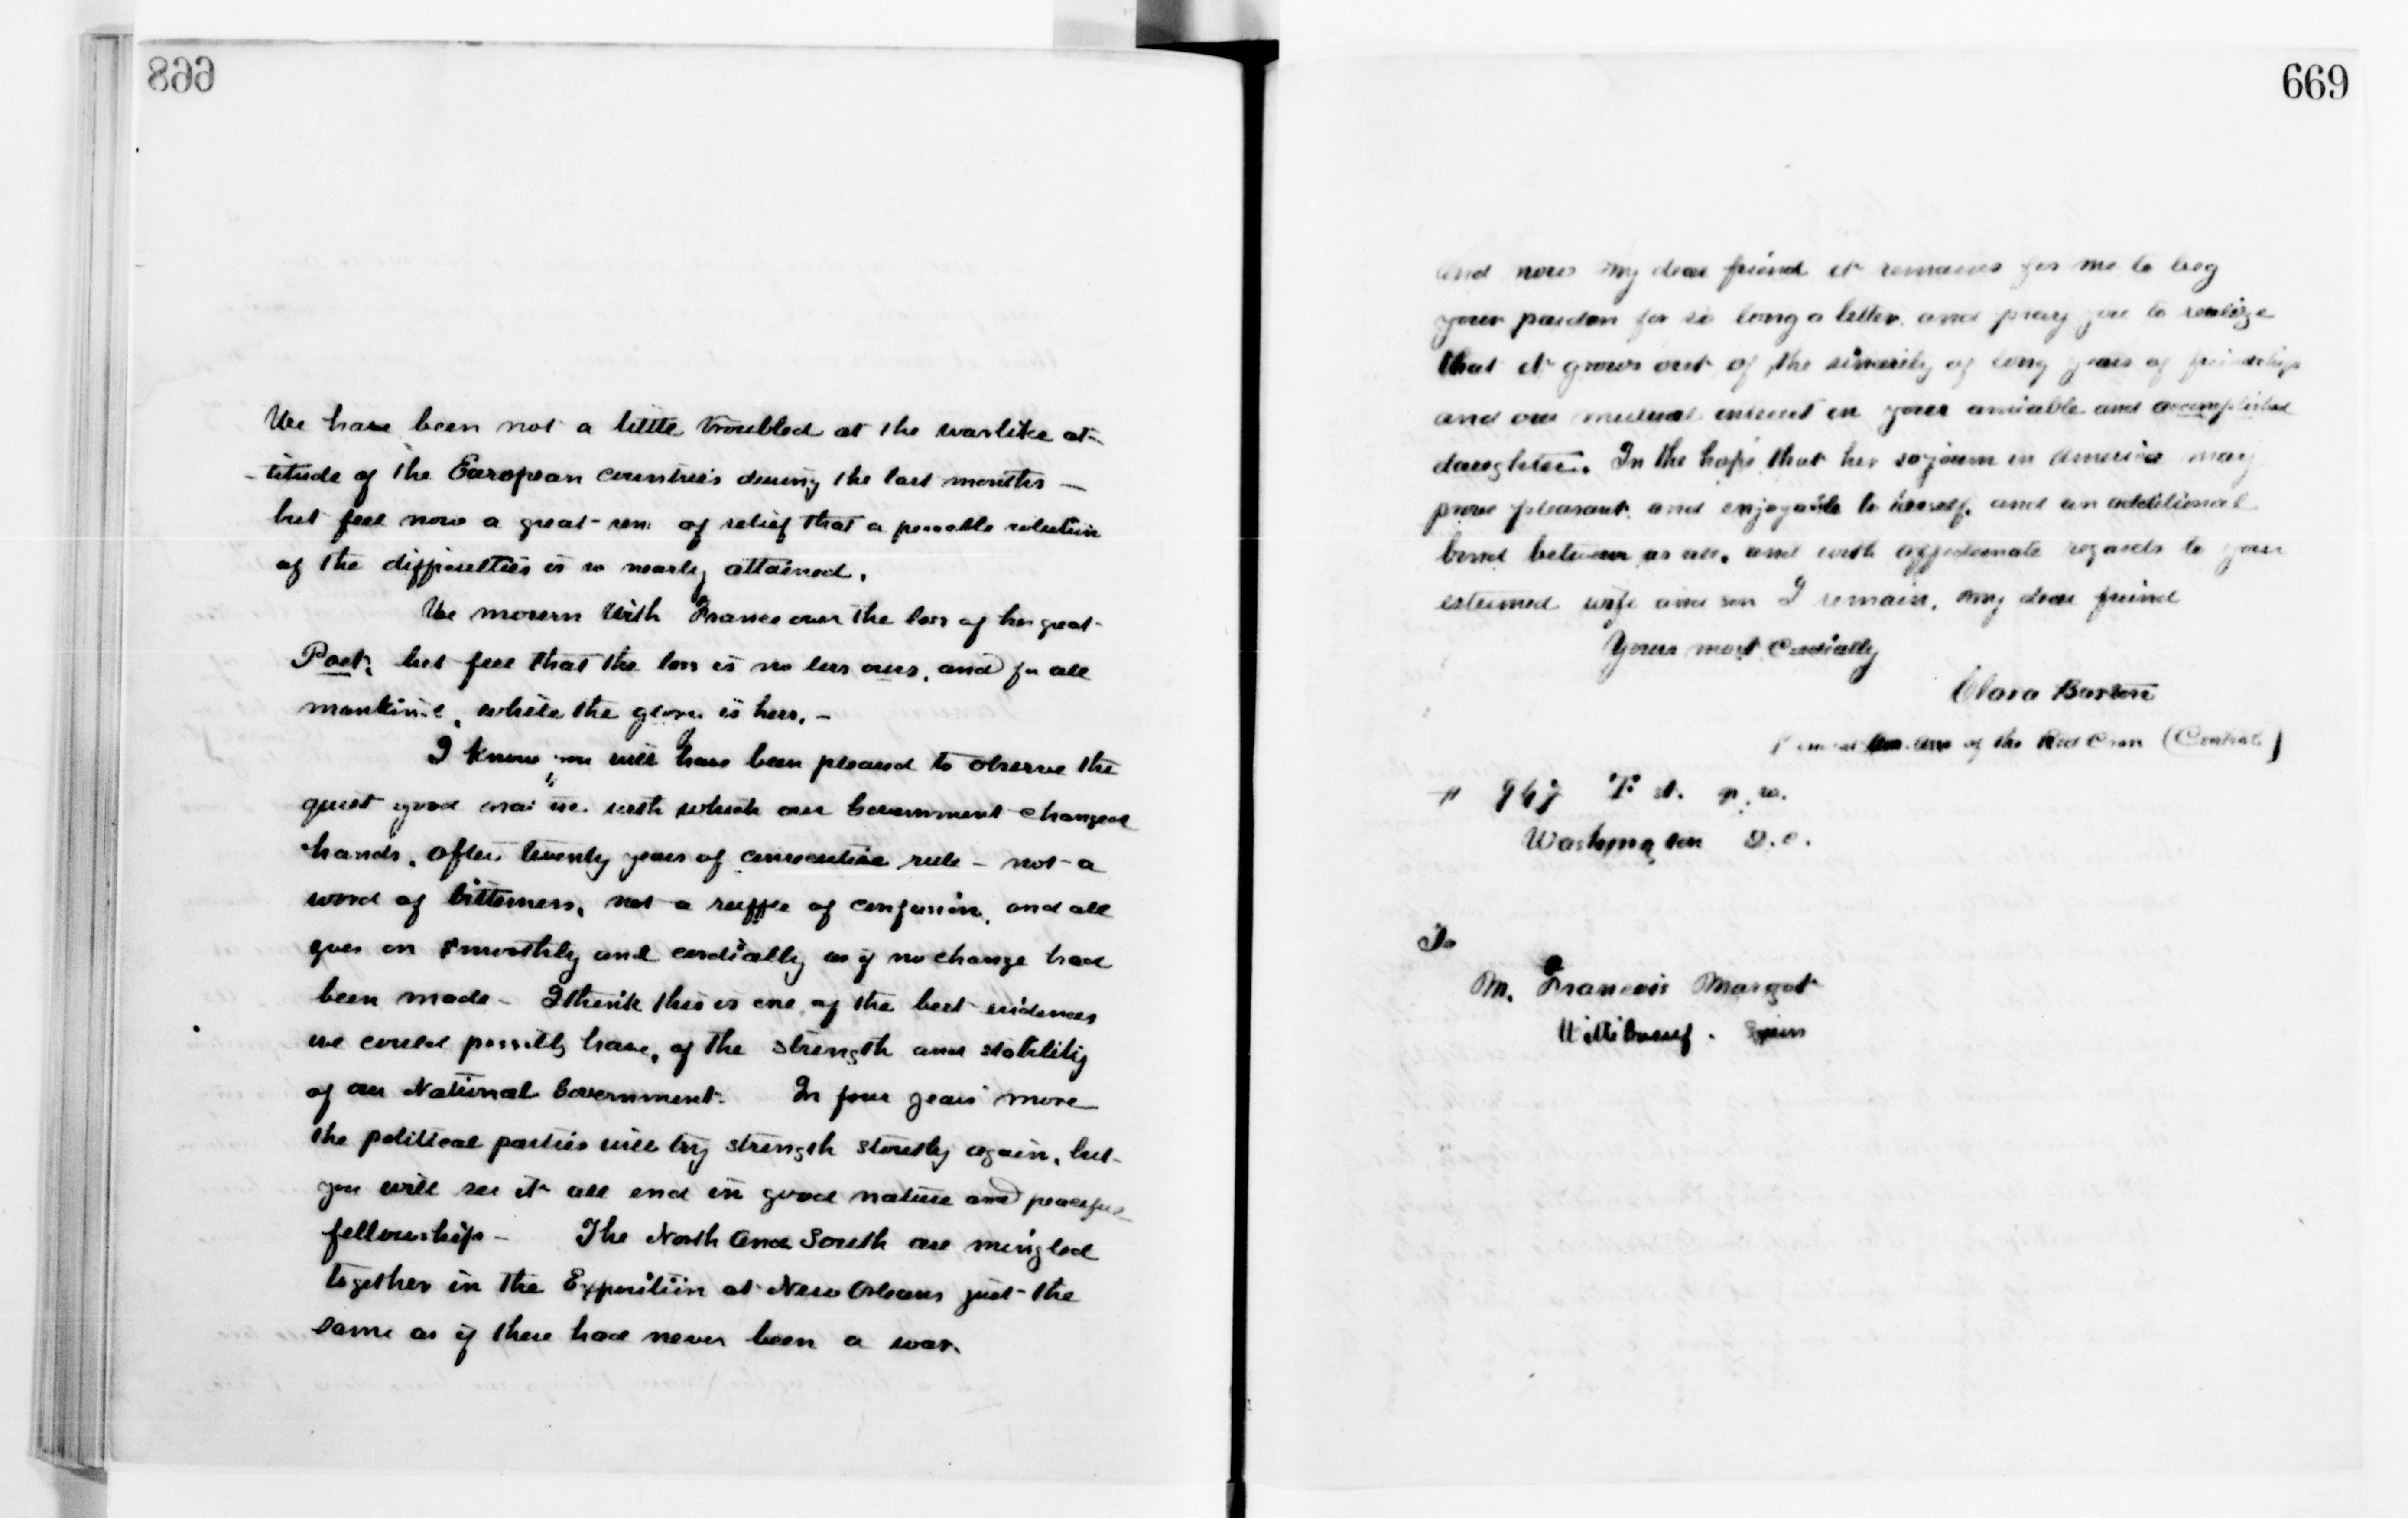 668
We have been not a little troubled at the warlike at-
-titude of the European countries during the last months —
but feel now a great of relief that a peaceable solution
of the difficulties is so nearly attained.
We mourn with France over the loss of her great
Poet, but feel that the loss is no less ours, and for all
mankind, while the glory is hers. —
I know you will have been pleased to observe the
quiet good with which our Government changed
hands, after twenty years of consecutive rule — not a
word of bitterness, not a ruffle of confusion, and all
goes on smoothly and cordially as if no change had
been made — I think this is one of the best evidences
we could possibly have, of the strength and stability
of our National Government. In four years more
the political parties will try strength stoutly again, but
you will see it all end in good nature and peaceful
fellowship — The North and South are mingled
together in the Exposition at New Orleans just the
same as if there had never been a war.
669
And now my dear friend it remains for me to beg
your pardon for so long a letter, and pray you to realize
that it grows out of the sincerity of long years of friendship
and our mutual interest in your amiable and accomplished
daughter. In the hope that her sojourn in America may
prove pleasant and enjoyable to herself, and an additional
bond between us all, and with affectionate regards to your
esteemed wife and son I remain, my dear friend
Yours most Cordially
Clara Barton
of the Red Cross (Central)
T st. n.w.
Washington D.C.
To
M. Francois Margot